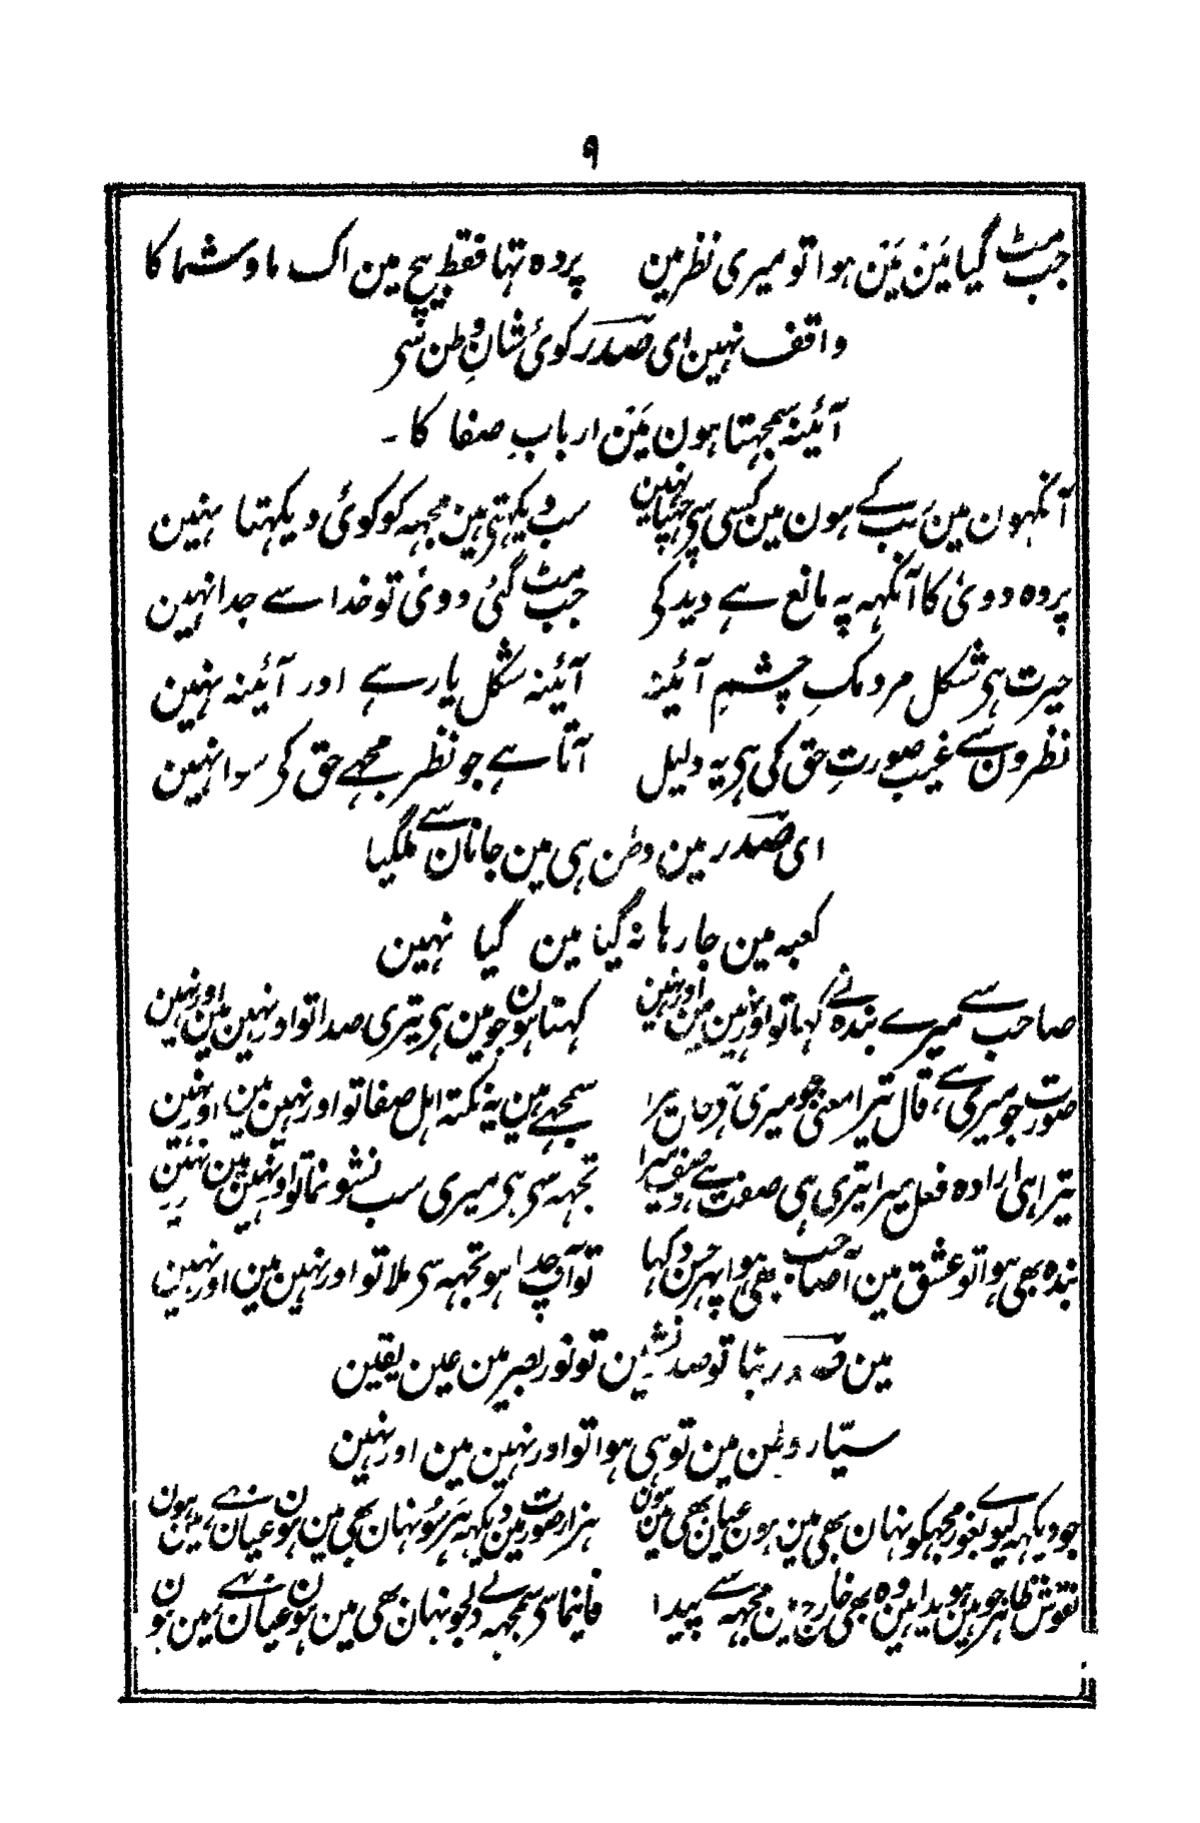 ۹
جب مٹ گیا مَین مَین ہوا تو میری نظر مین پردہ تہا فقط بیچ مین اک ما و شما کا
واقف نہین ای صدر کوئی شانِ وطن سے
آئینہ سمجہتا ہون مَین اربابِ صفا کا۔
آنکہون مین سب کے ہون مین کسی سی چہپا نہین سب دیکہتی ہین مجہہ کو کوئی دیکہتا نہین
پردہ دوئی کا آنکہہ پہ مانع ہے دید کی جب مٹ گئی دوئی تو خدا سے جدا نہین
حیرت ہی شکل مردمکِ چشمِ آئینہ آئینہ شکل یار ہے اور آئینہ نہین
نظرون سے غیب صورتِ حق کی ہی یہ دلیل آتا ہے جو نظر مجہے حق کی سوا نہین
ای صدر مین وطن ہی مین جانان سے ملگیا
کعبہ مین جا رہا نہ گیا مین گیا نہین
صاحب سے میرے بندہ نے کہا تو اور نہین مین اور نہین کہتا ہون جو مین ہی تیری صدا تو اور نہین مین اور نہین
صورت جو میری ہے قال تیرا معنی جو میری سمجہے ہین یہ نکتہ اہل صفا تو اور نہین مین اور نہین
تیرا ہی ارادہ فعل میرا تیری ہی صفت ہے تجہہ سی ہی میری سب نشو نما تو اور نہین مین اور نہین
بندہ بھی ہوا تو عشق مین آ صاحب بھی ہوا پہر حسن دکہا تو آپ جدا ہو تجہہ سی ملا تو اور نہین مین اور نہین
مین صدر بنا تو صدر نشین تو نور بصر مین عین یقین
سیّار وطن مین تو ہی ہوا تو اور نہین مین اور نہین
جو دیکہہ لیوے بغور مجہکو نہان بھی مین ہون عیان بھی مین ہون ہزار صورت مین دیکہہ ہر سُو نہان بھی مین ہون عیان بھی مین ہون
نقوش ظاہر جو ہین ہویدا ہین وہ بھی خارج مین مجہہ سے پیدا فانما سی سمجہہ لے دلجو نہان بھی مین ہون عیان بھی مین ہون